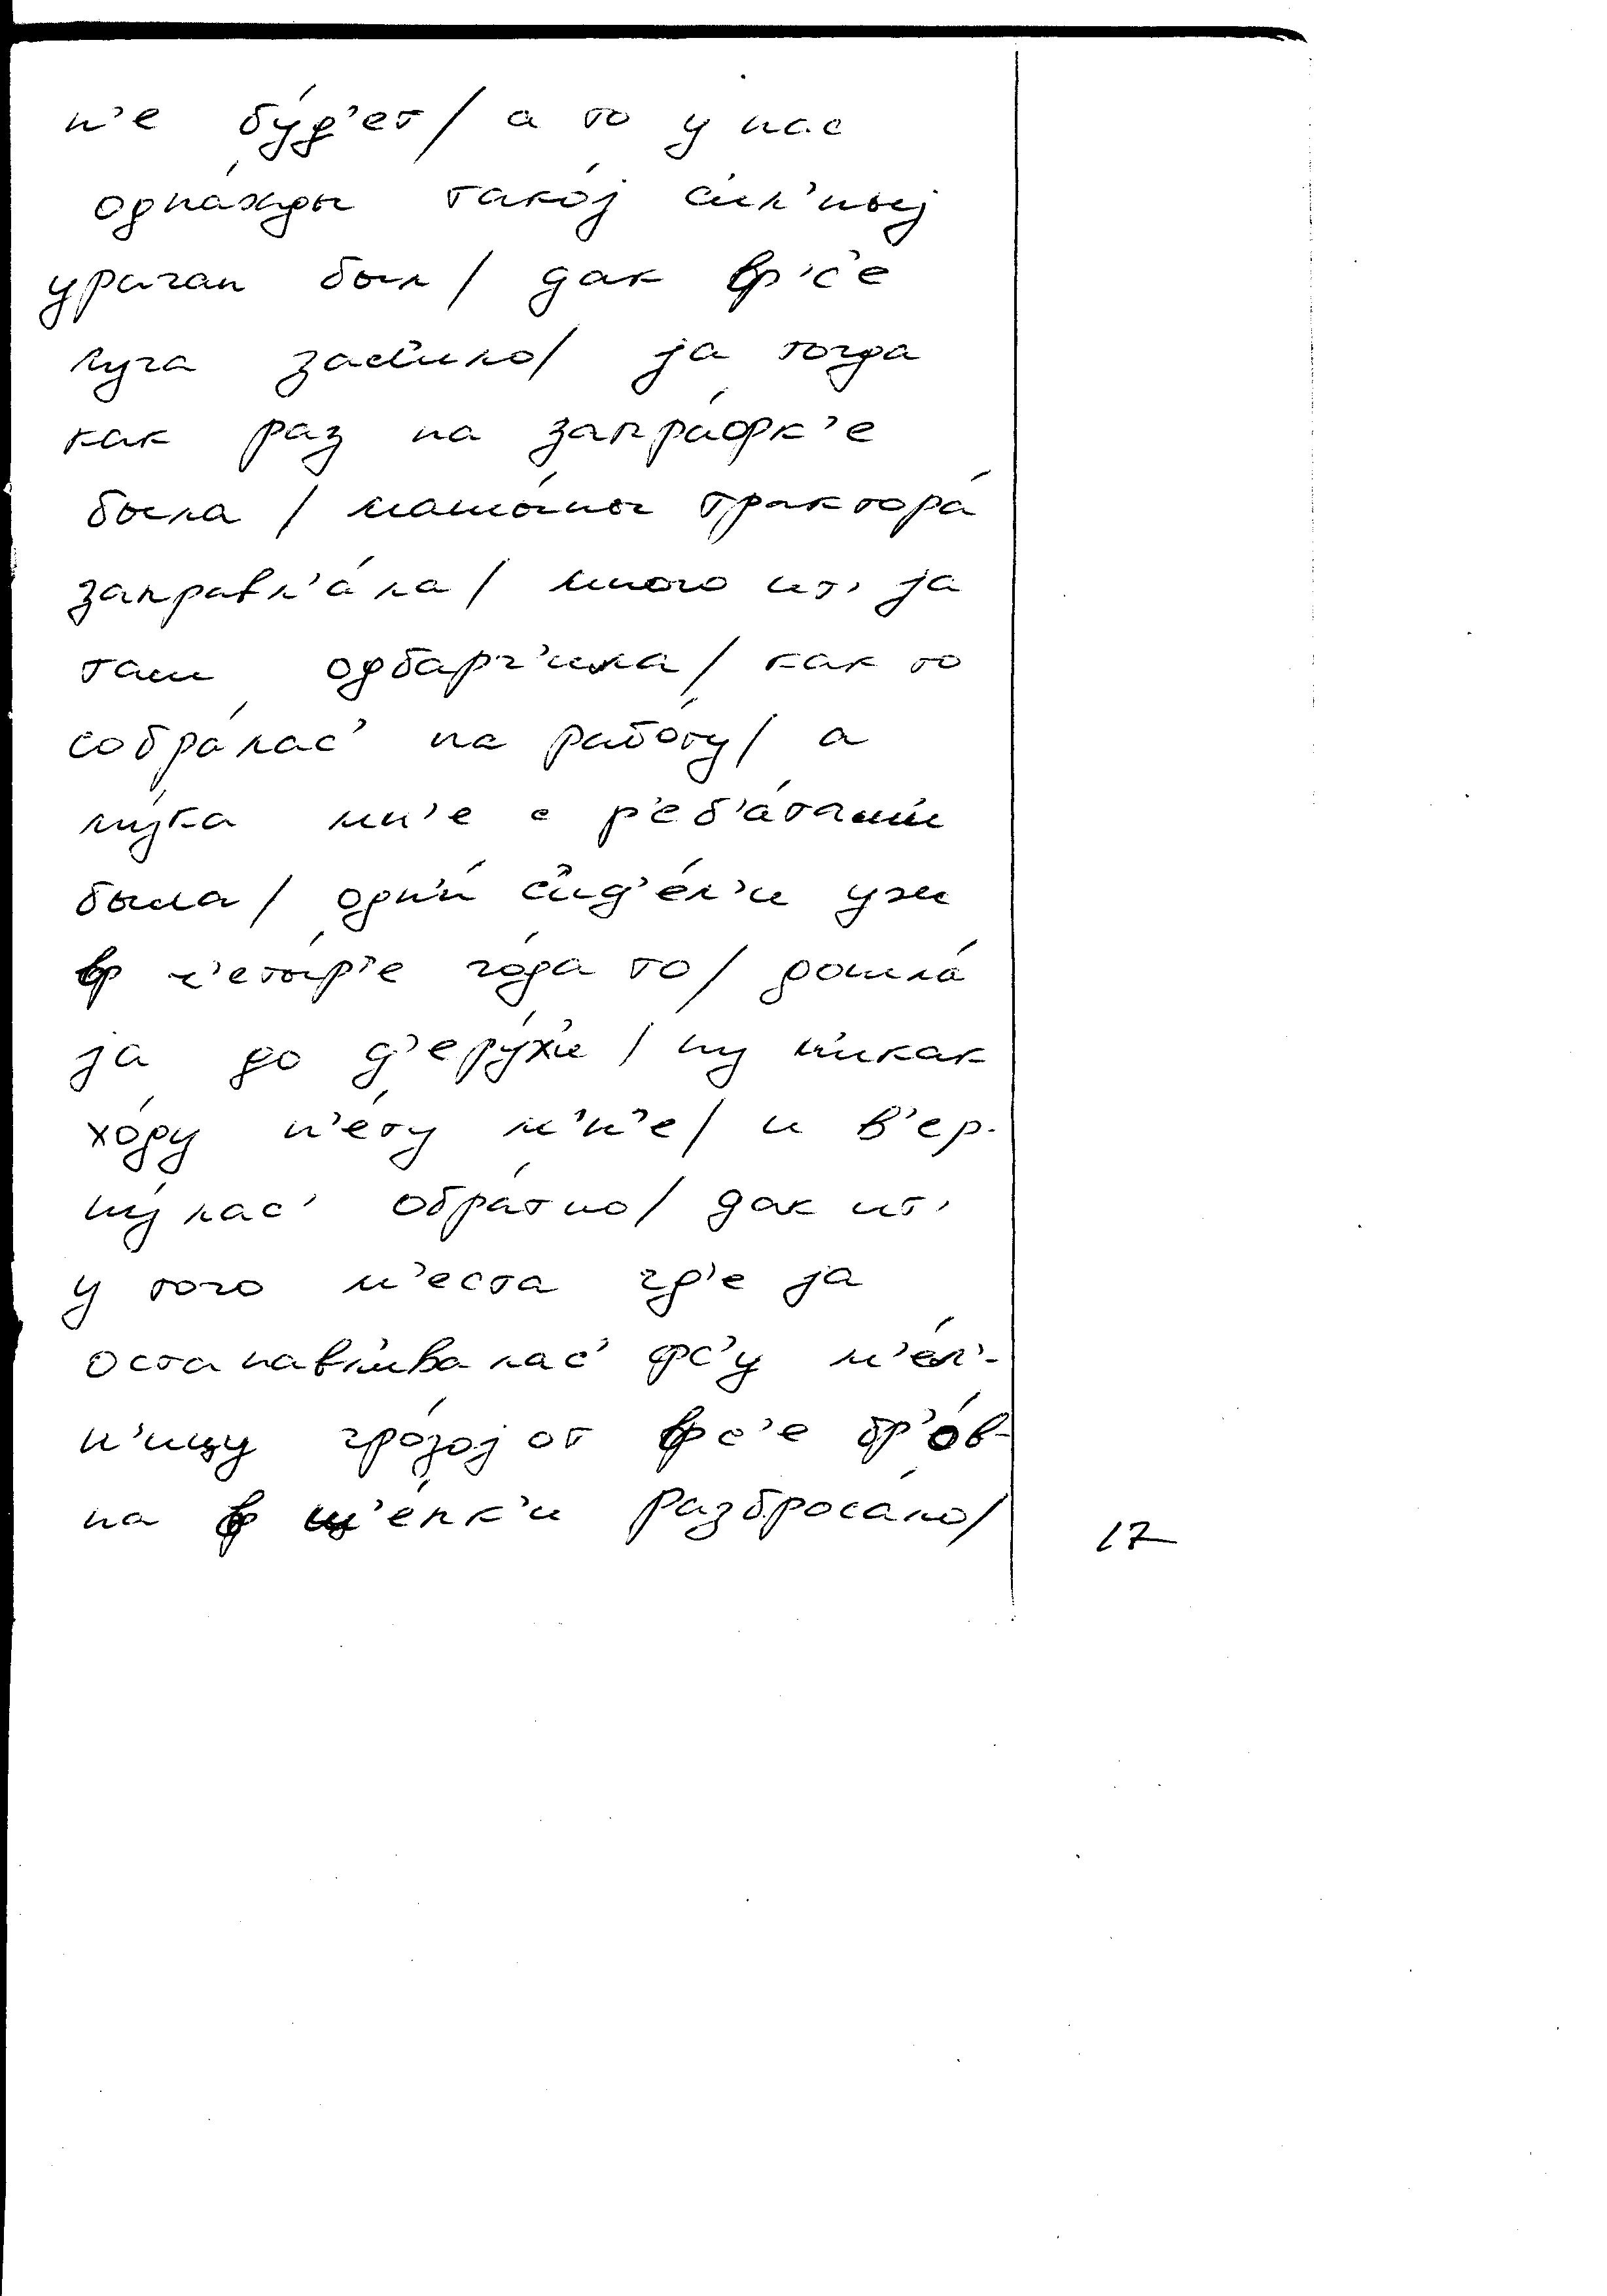 н'е бу́д'ет/ а то у нас
одна́жды тако́ј с'ил'ныј
ураган был/ дак ф'с'е
луга зас'ило/ ја тогда
как раз на запра́фк'е
была/ машы́ны трактора́
заправл'а́ла/ много ит' ја
там одбарг'ила/ как то
собра́лас' на рабо́ту/ а
му́ка мн'е с р'еб'а́там'и
была/ одн'и́ с'ид'е́л'и уж
ф ч'еты́р'е го́да то/ дошла́
ја до д'еру́х'и/ ну н'икак
хо́ду н'е́ту м'н'е/ и в'ер-
ну́лас' обра́тно/ дак ит'
у того м'еста гд'е ја
останавл'ивалас' фс'у м'е́л'-
н'ицу гро́зој от фс'е бр'о́в-
на ф щ'е́пк'и разброса́ло/
17